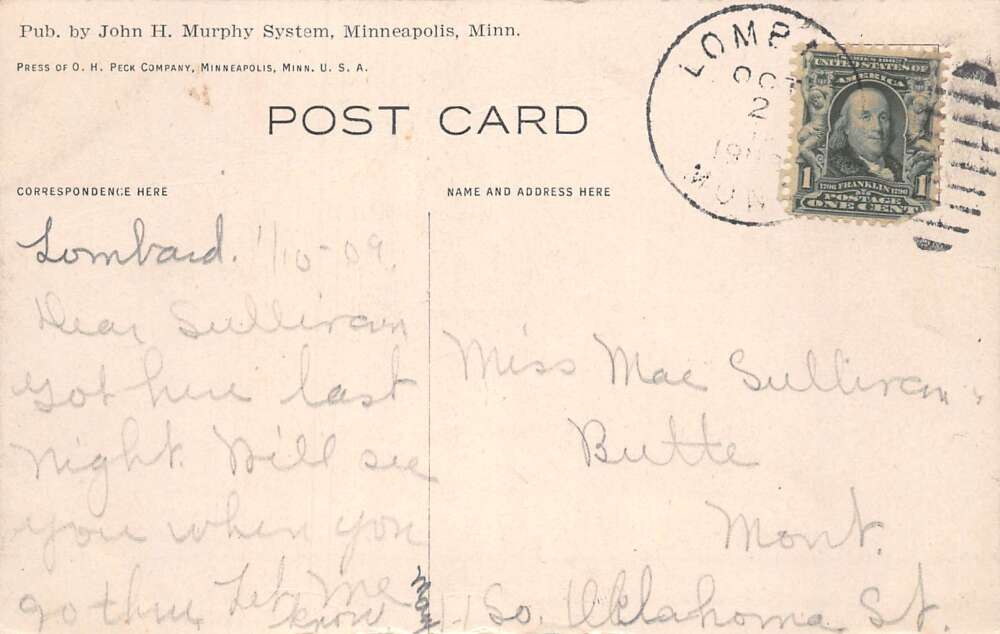 Pub. by John H. Murphy System, Minneapolis, Minn.
PRESS OF O. H. PECK COMPANY, MINNEAPOLIS, MINN. U. S. A.
POST CARD
LOMBA
OCT
2
MON
SERIES 1902
UNITED STATES OF
AMERICA
1 1
1706 FRANKLIN 1790
POSTAGE
ONE CENT
CORRESPONDENCE HERE
NAME AND ADDRESS HERE
Lombard. 1/10-09.
Dear Sullivan
Got here last
night. Will see
you when you
go thru Let Me
know
Miss Mae Sullivan
Butte
Mont.
So. Oklahoma St.